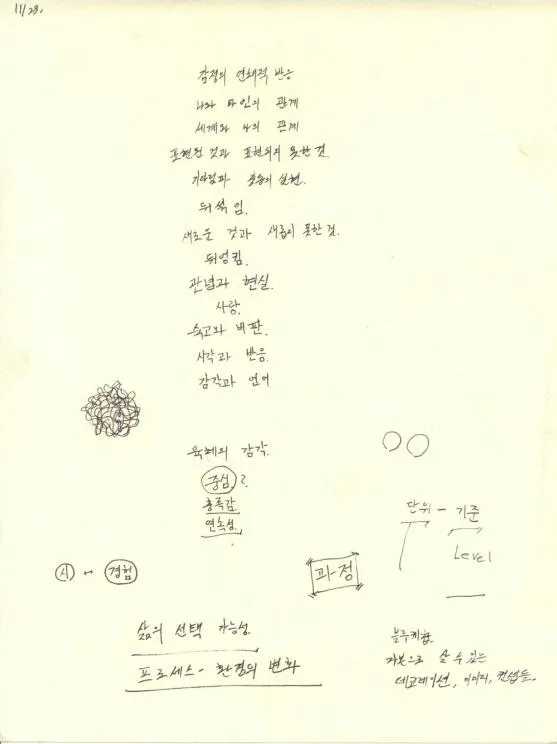 11/29.
감정의 연쇄적 반응
나와 타인의 관계
세계와 나의 관계
표현된 것과 표현되지 못한 것.
기다림과 충동의 실현.
뒤섞임.
새로운 것과 새롭지 못한 것.
뒤엉킴.
관념과 현실.
사랑.
숙고와 비판.
시각과 반응.
감각과 언어
육체의 감각.
중심?
충족감.
연속성.
단위 - 기준
Level
시 - 경험
과정
삶의 선택 가능성.
프로세스 - 환경의 변화
자본으로 살 수 있는
데코레이션, 이미지, 컨셉들.